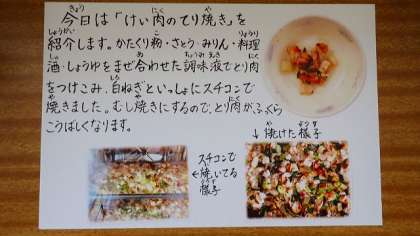 今日は「けい肉のてり焼き」を
紹介します。かたくり粉・さとう・みりん・料理
酒・しょうゆをまぜ合わせた調味液でとり肉
をつけこみ、白ねぎといっしょにスチコンで
焼きました。むし焼きにするので、とり肉がふっくら
こうばしくなります。
↓焼けた様子
スチコンで
←焼いてる
様子